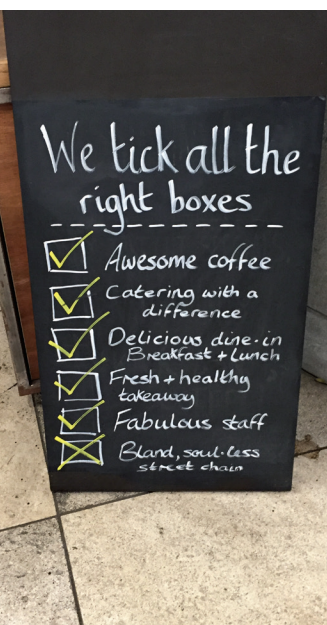 We tick all the
right boxes
Awesome coffee
Catering with a
difference
Delicious dine-in
Breakfast + Lunch
Fresh + healthy
takeaway
Fabulous staff
Bland, soul-less
street chain